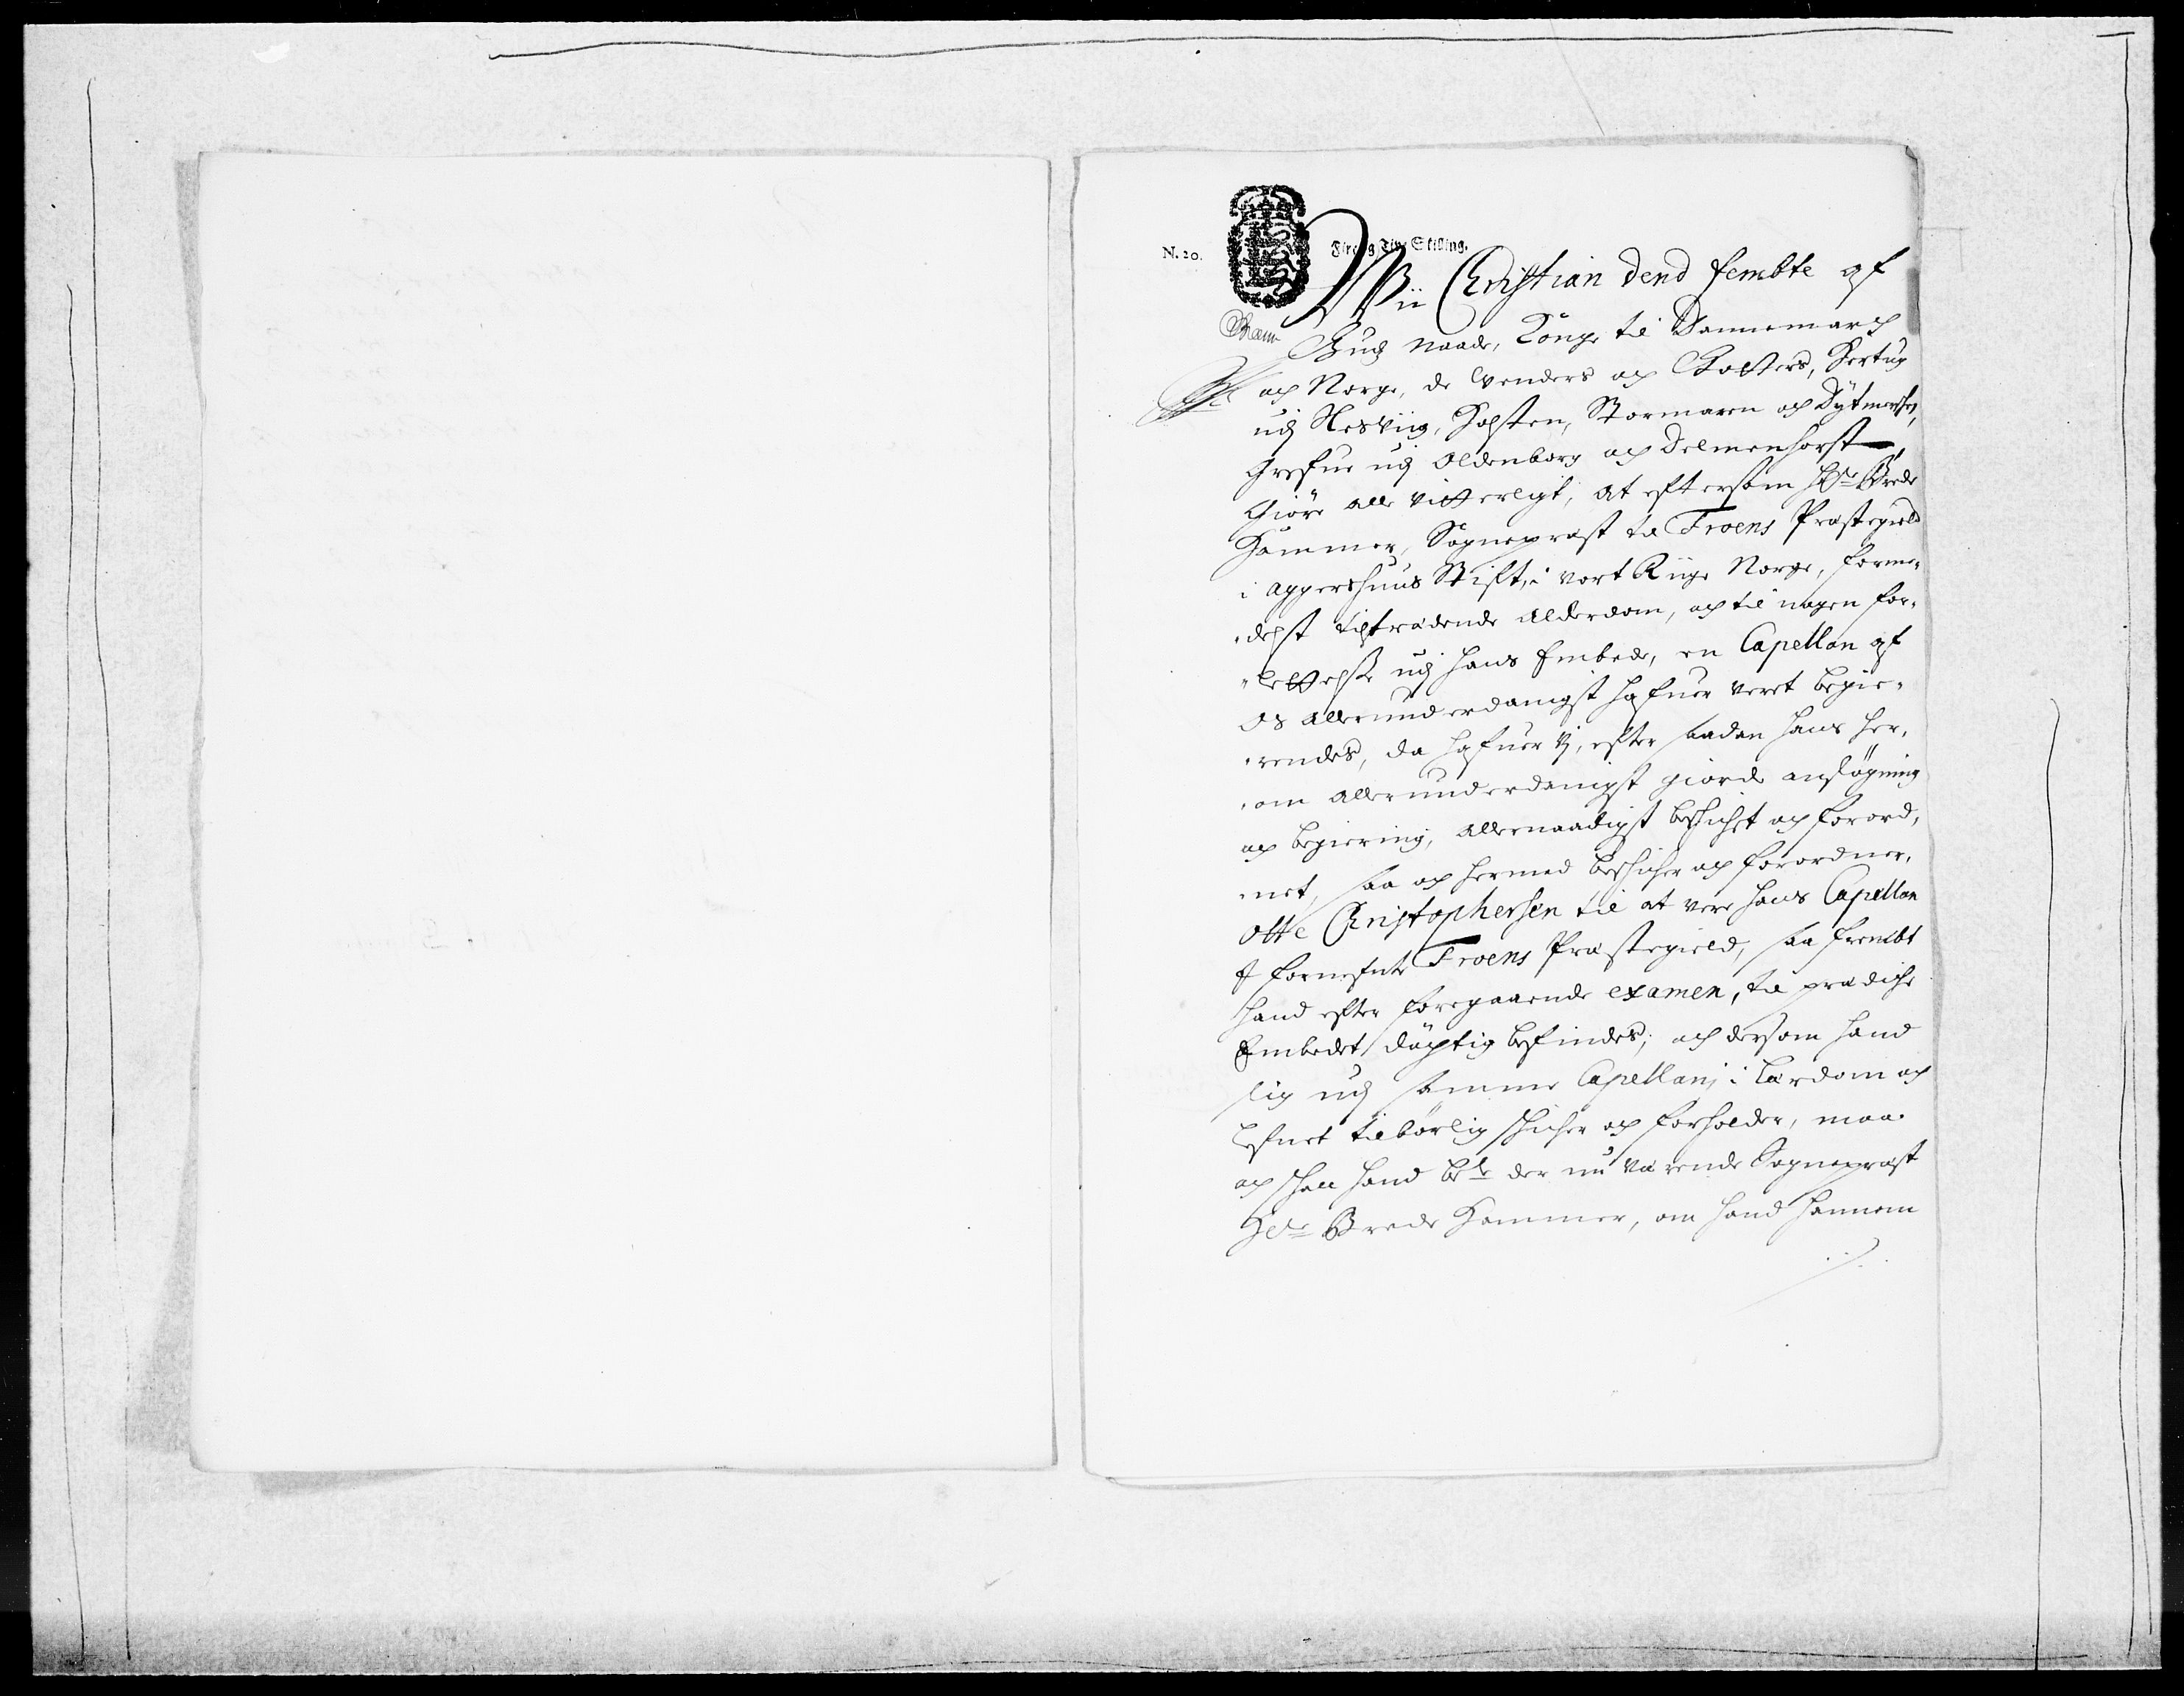 N. 20.
Fireog Tive Skilling.
Wii Christian dend fembte af
Gud Naade, Konge til Dannemarch
og Norge, de Venders og Gotters, Hertug
udj Slesviig, Holsten, Stormaren og Dytmersken,
Grefue udj Oldenborg og Delmenhorst,
Giöre alle vitterligt, at eftersom Hr. Brede
Hammer, Sognepræst til Froens Præstegield
i Aggershuus Stift, i vort Riige Norge, forme¬
delst tiltrædende Alderdom, og til nogen for¬
lettelse udj hans Embede, en Capellan af
Os allerunderdanigst hafuer verit begie¬
rendes, da hafuer Vj, efter saadan hans her¬
om allerunderdanigst giorde ansøgning
og begiering, allernaadigst beskichet og forord¬
net, saa og hermed beskicher og forordner,
Otte Christophersen til at vere hans Capellan
i fornefnte Froens Præstegield, saa frembt
hand efter foregaaende examen, til prædiche
Embedet döchtig befindes; och dersom hand
sig udj samme Capellanj i Lærdom og
Lefnet tilbörlig skicher og forholder, maa
og skal hand bete. der nu værende Sognepræst
Her Brede Hammer, om hand hannem